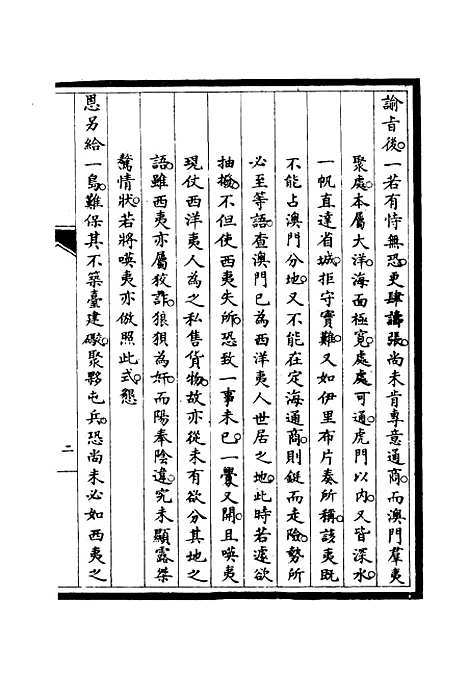 諭旨後一若有恃無恐更肆譸張尚未肯專意通商而澳門羣夷
聚處本屬大洋海面極寬處處可通虎門以內又皆深水
一帆直達省城拒守實難又如伊里布片奏所稱該夷既
不能占澳門分地又不能在定海通商則鋌而走險勢所
必至等語查澳門已為西洋夷人世居之地此時若遽欲
抽撥不但使西夷失所恐致一事未已一釁又開且嘆夷
現仗西洋夷人為之私售貨物故亦從未有欲分其地之
語雖西夷亦屬狡詐狼狽為奸而陽奉陰違究未顯露桀
驁情狀若將嘆夷亦倣照此式懇
恩另給一島難保其不築臺建礮聚夥屯兵恐尚未必如西夷之
二